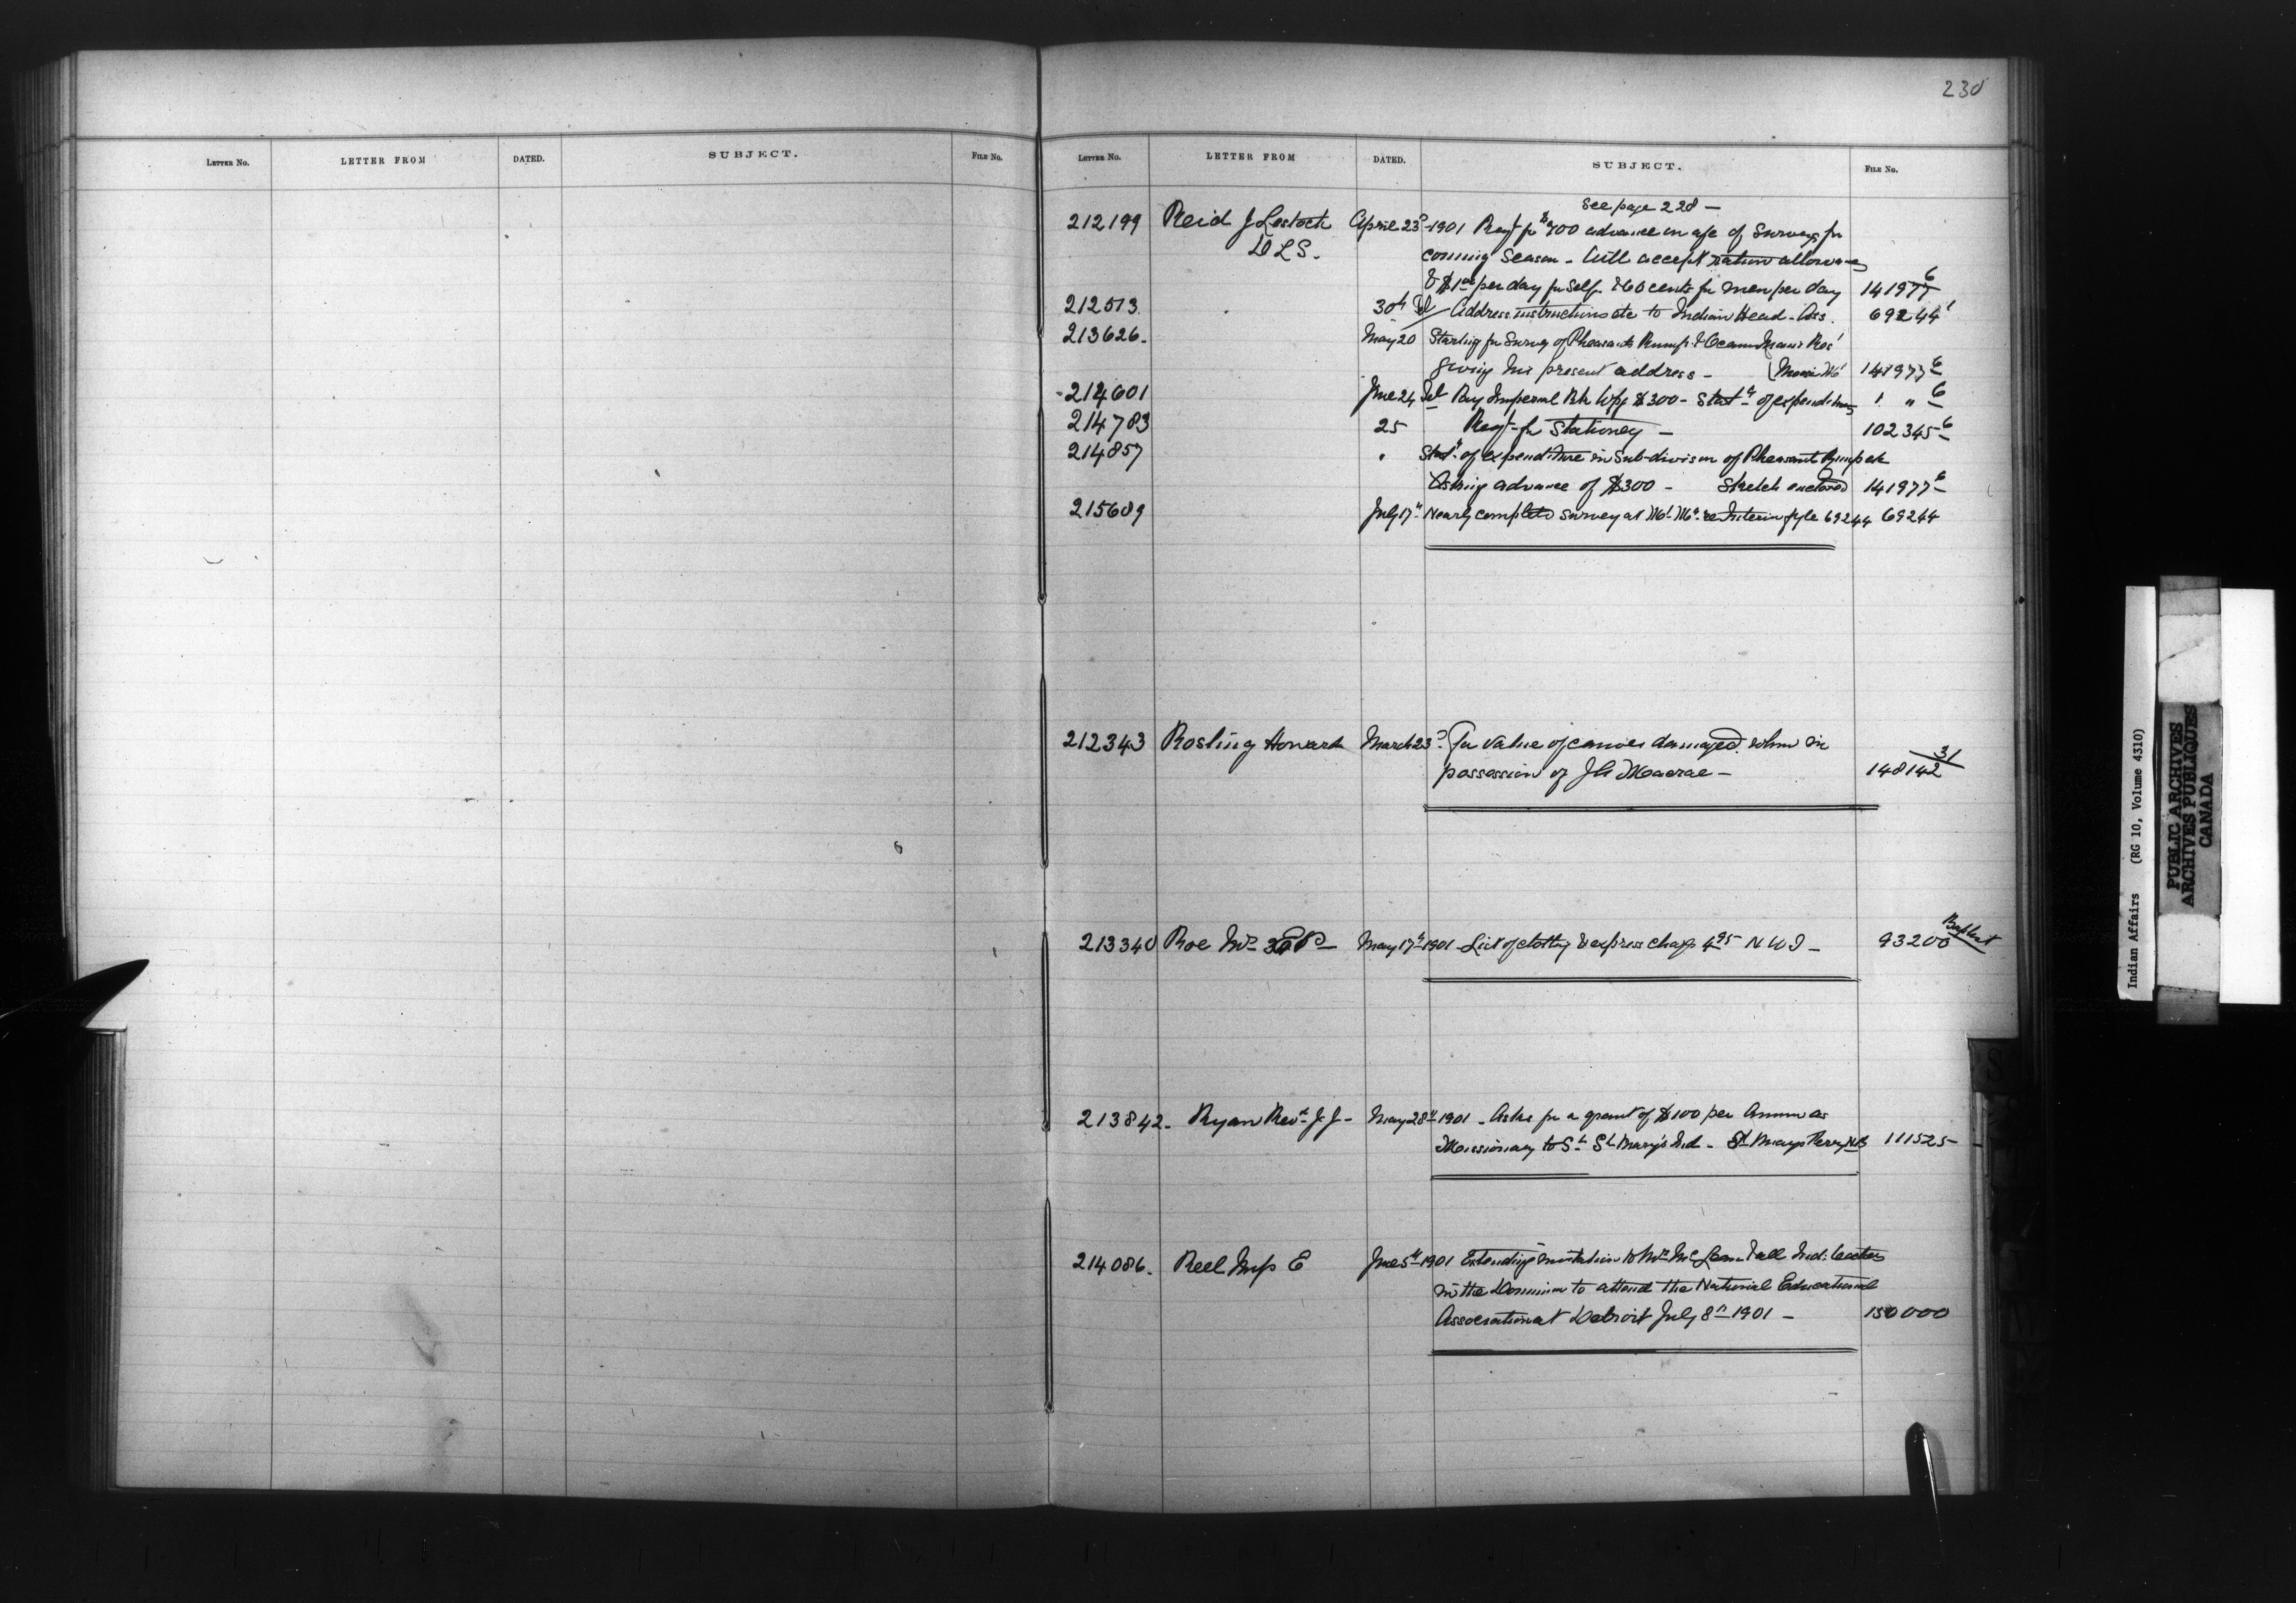 230
LETTER NO. LETTER FROM DATED. SUBJECT. FILE NO.
LETTER NO. LETTER FROM DATED. SUBJECT. FILE NO.
See page 228 —
212199 Reid J Lestock April 23d 1901 Reqt fr $400 advance on a/c of Surveys fr
DLS. coming Season - Will accept ration allowance
& $1 00 per day fr Self & 60 cents fr men per day 141977 6
212513. 30th Tel Address instructions etc to Indian Head - Ass. 69244 1
213626. May 20 Starting fr Survey of Pheasants Rump & Ocean Mans Res
giving his present address - (Moose Mt 141977 6
214601 June 24 Tel Pay Imperial Bk Wpg $300 - Statt of expenditures " " 6
214783 25 Reqt fr Stationey — 102345 6
214857 " Statt of expenditure in Sub-division of Pheasant Rump etc
Asking advance of $300 - Sketch enclosed 141977 6
215689 July 17th Nearly completed survey at Interim fyle 69244 69244
212343 Rosling Howard March 23d Fr value of canoes damaged when in
possession of J A Macrae — 148142 31
213340 Roe Mrs May 17th 1901 - List of clothg & express charge 4 95 N W T — 93200 Baptist
213842. Ryan Revd J J - May 28th 1901 - Asks fr a grant of $100 per Annum as
Missionary to St St Mary's Ind - St Marys Ferry NB 111525
214086. Reel Miss E June 5th 1901 Extending invitation to Mr McLean & all Ind: teachers
in the Dominion to attend the National Educational
Association at Detroit July 8th 1901 — 150000
S
Indian Affairs (RG 10, Volume 4310)
PUBLIC ARCHIVES
ARCHIVES PUBLIQUES
CANADA